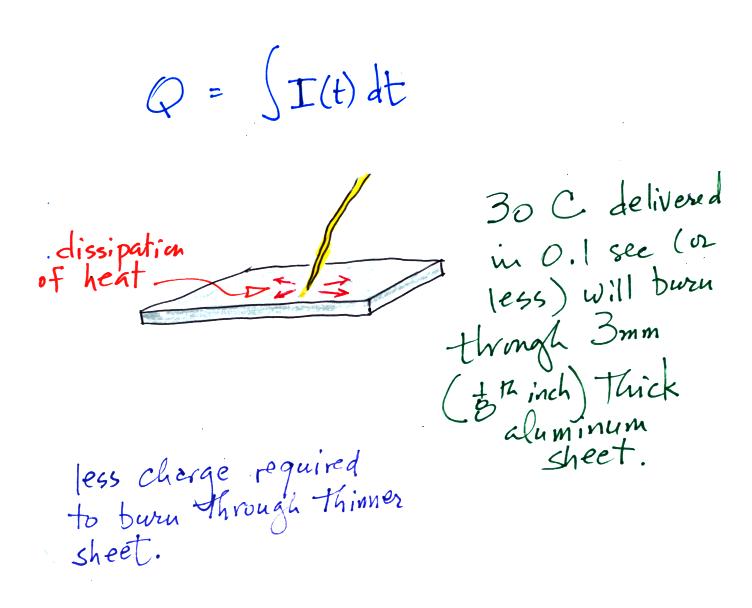 Q = ∫I(t) dt
dissipation
of heat
30 C delivered
in 0.1 sec (or
less) will burn
through 3mm
(1/8 th inch) thick
aluminum
sheet.
less charge required
to burn through thinner
sheet.